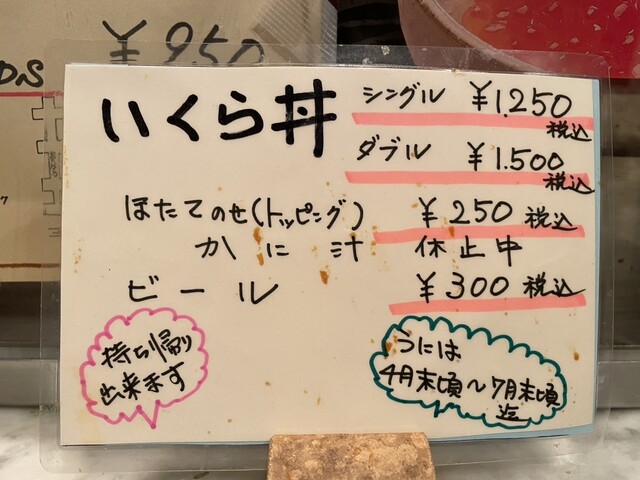 ¥950
いくら丼
シングル ¥1,250 税込
ダブル ¥1,500 税込
ほたてのせ(トッピング) ¥250 税込
かに汁 休止中
ビール ¥300 税込
持ち帰り
出来ます
うには
4月末頃～7月末頃
迄